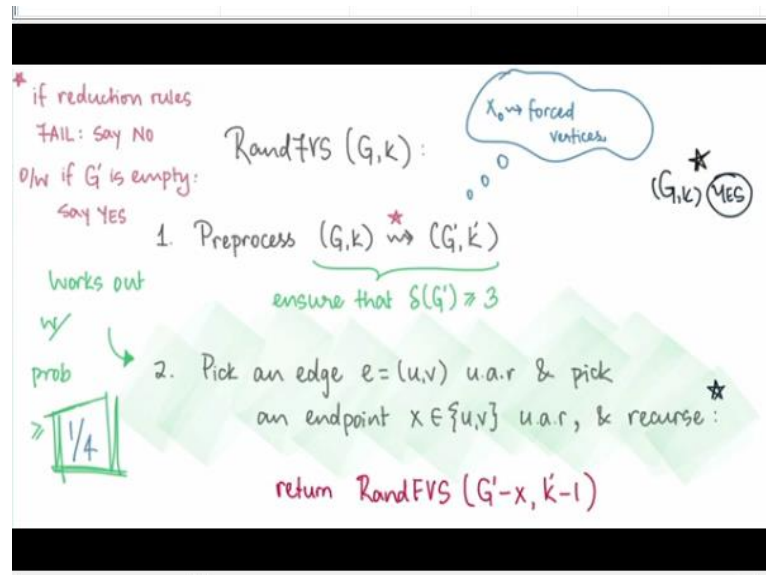 * if reduction rules
FAIL: Say NO
O/W if G' is empty:
Say YES
RandFVS (G,k):
X₀ ⇝ forced
vertices
(G,k) YES
1. Preprocess (G,k) ⇝ (G',k')
ensure that δ(G') ⩾ 3
Works out
w/
prob
⩾ 1/4
2. Pick an edge e = (u,v) u.a.r & pick
an endpoint x ∈ {u,v} u.a.r, & recurse:
return RandFVS (G'-x, k'-1)